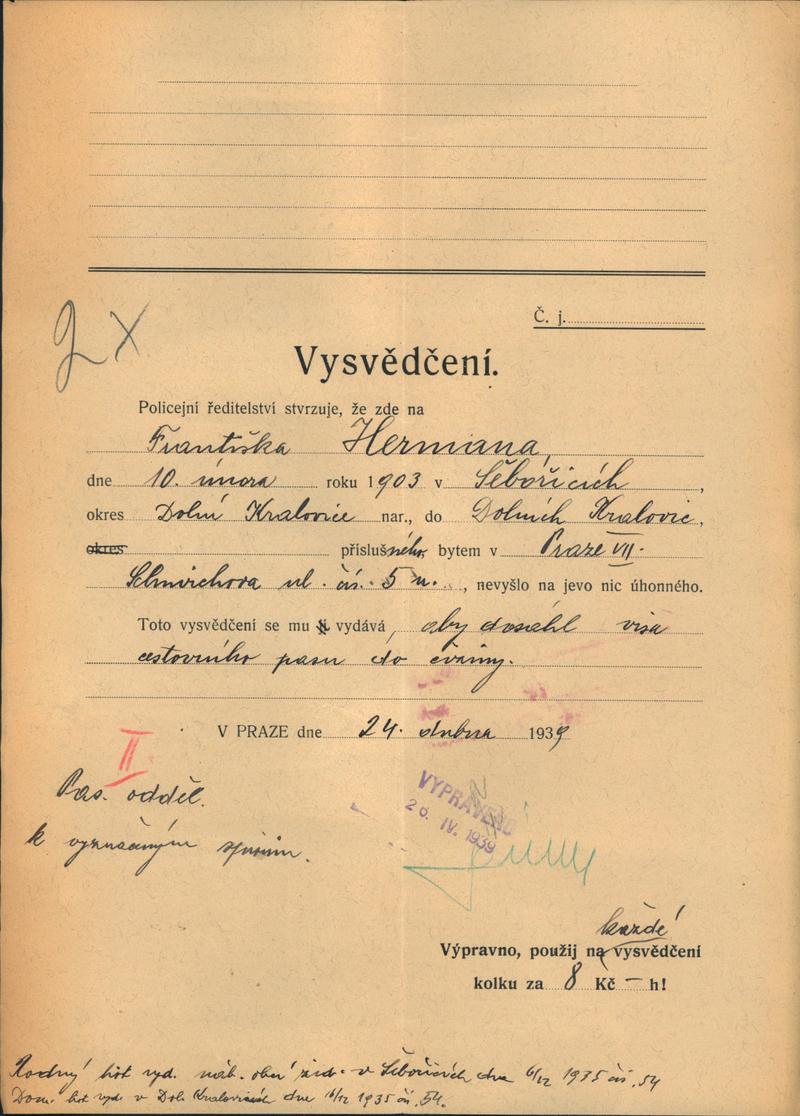 2 X
Č. j.
Vysvědčení.
Policejní ředitelství stvrzuje, že zde na
Františka Hermana,
dne 10. února roku 1903 v Šebořicích,
okres Dolní Kralovice nar., do Dolních Kralovic,
okres příslušného, bytem v Praze VII.
ul. čís. 5 n., nevyšlo na jevo nic úhonného.
Toto vysvědčení se mu vydává, aby dosáhl visa
cestovního pasu do činy.
V PRAZE dne 24. dubna 1939
II
Pas. odděl.
k vyznačeným spisům.
VYPRAVENO
26. IV. 1939
každé
Výpravno, použij na vysvědčení
kolku za 8 Kč — h!
Rodný list vyd. náb. obcí žid. v Šebořicích dne 6/12 1935 čís. 54
Dom. list vyd. v Dol. Kralovicích dne 16/12 1935 čís. 54.